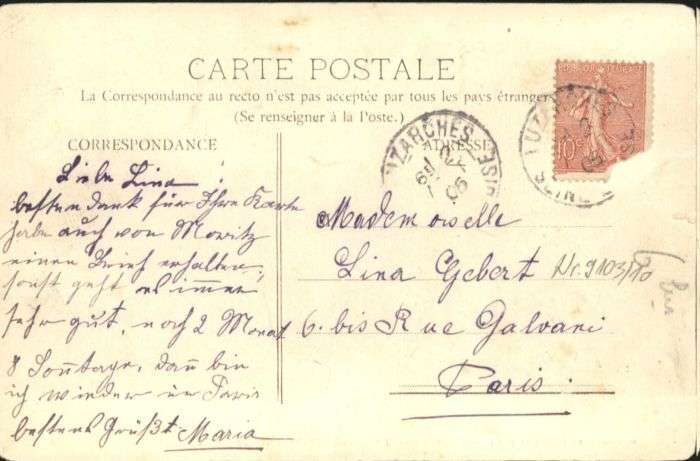 CARTE POSTALE
La Correspondance au recto n'est pas acceptée par tous les pays étrangers
(Se renseigner à la Poste.)
CORRESPONDANCE
ADRESSE
Liebe Lina!
besten dank für Ihre Karte
habe auch von Moritz
einen Brief erhalten,
sonst geht es immer
sehr gut, noch 2 Monat
8 Sonntage, dann bin
ich wieder in Paris
bestens Grüßt
Maria
LUZARCHES
OISE
10c
SEINE
Mademoiselle
Lina Gebert
Nr. 9103/10
6. bis Rue Galvani
Paris.